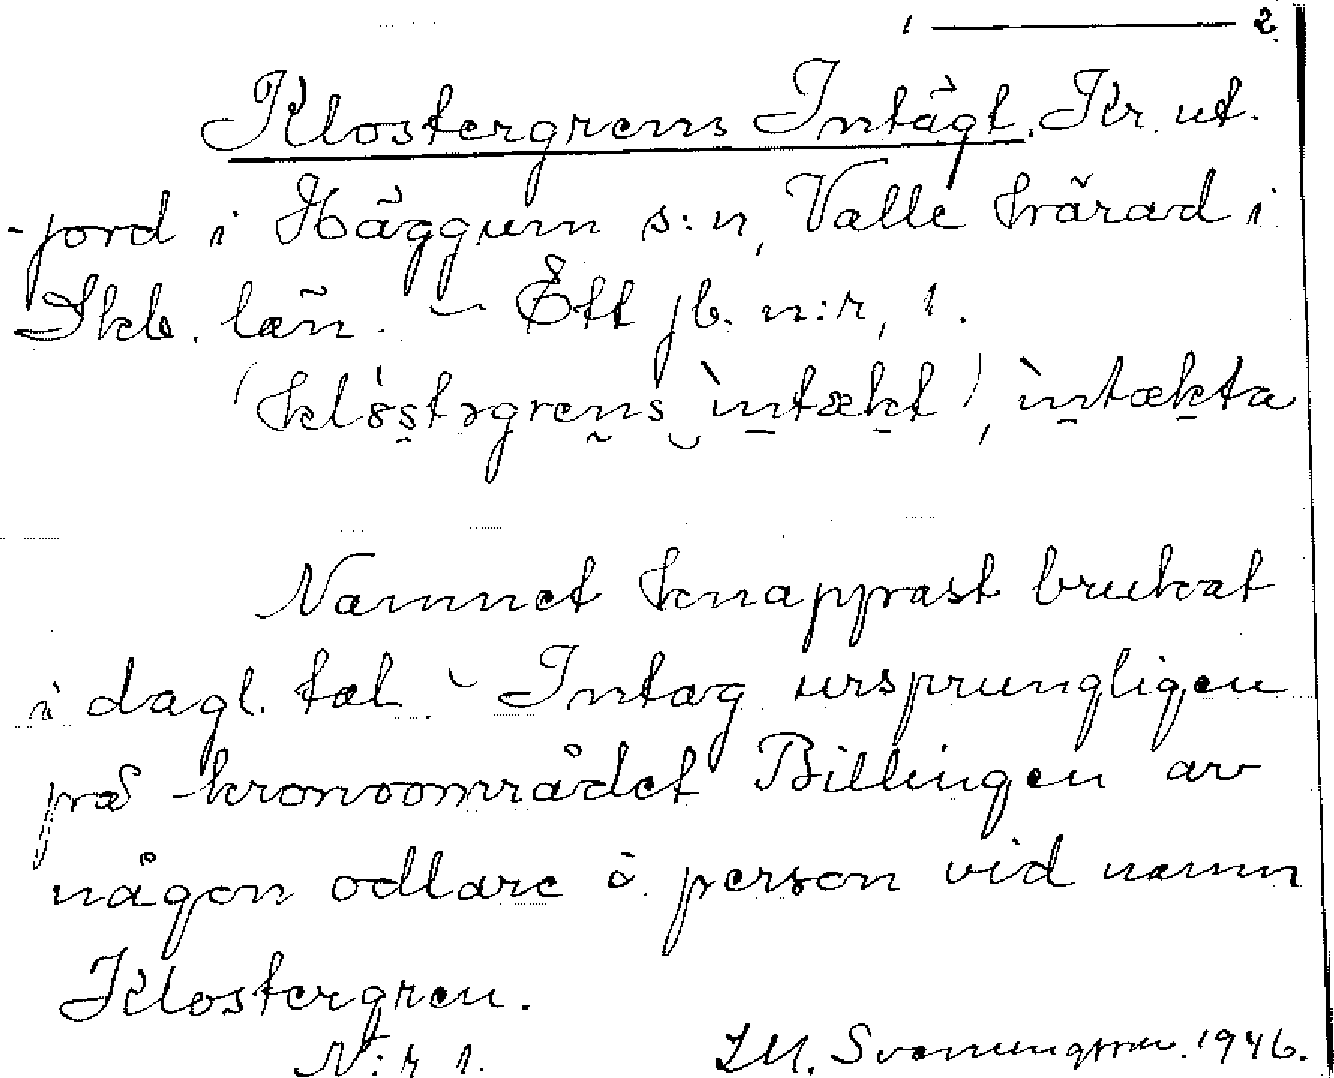 1 ——— 2
Klostergrens Intägt. Kr. ut-
jord i Häggum s:n, Valle härad i
Skb. län. – Ett jb. n:r, 1.
Namnet knappast brukat
i dagl. tal – Intag ursprungligen
på kronoområdet Billingen av
någon odlare o. person vid namn
Klostergren.
N:r 1. Svenungsson. 1946.